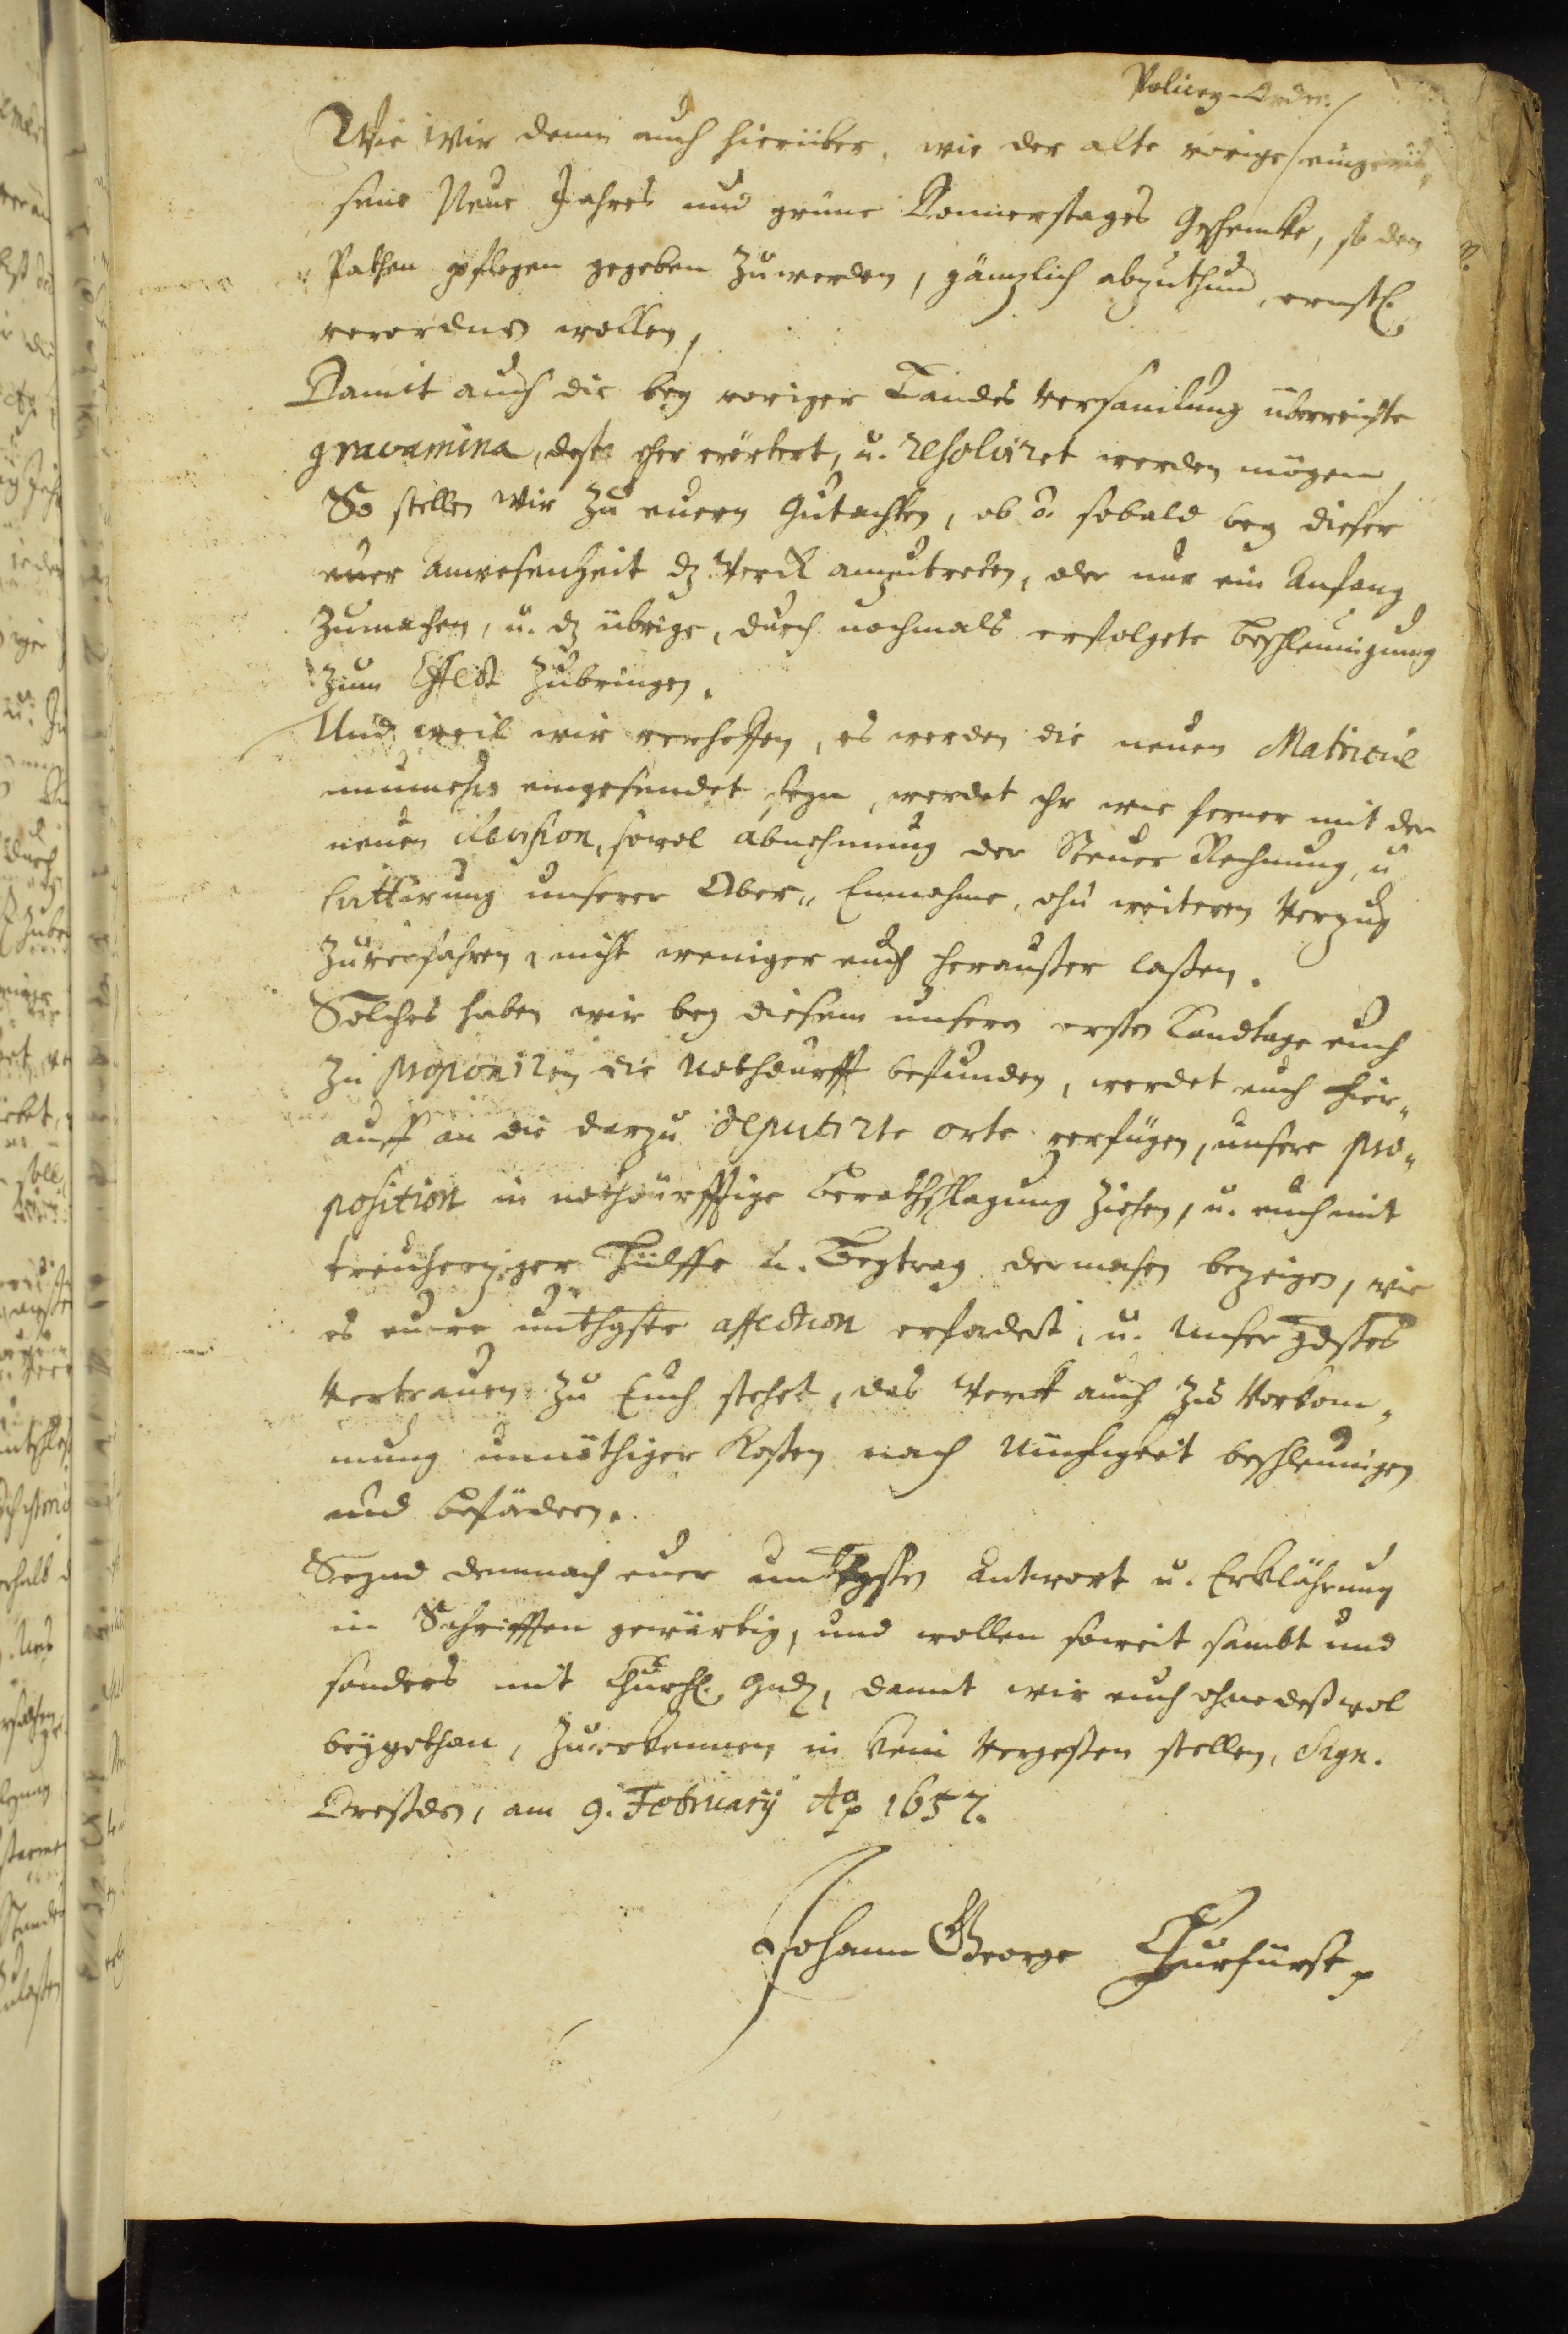 Policey-Orden.
Wie Wir denn auch hierüber, wie der alte vorige eingeriß„
sene Neue Jahres und grüne Donnerstages Geschencke, so den
Pathen pflegen gegeben zuwerden, gäntzlich abzuthun, ernstl.
verordnen wollen,
Damit auch die bey voriger Landes Versamlung überreichte
gravamina, desto eher erörtert, u. resolviret werden mögen,
So stellen Wir zu euern Gutachten, ob sobald bey dieser
euer Anwesenheit dz Werck anzutreten, oder nur ein Anfang
zumachen, u. dz übrige, durch nochmals erfolgete beschleunigung
zum Effect zubringen.
Und weil wir verhoffen, es werden die neuen Matricul
nunmehr eingesendet seyn, werdet ihr wie ferner mit der
neuen Revision, sowol abnehmung der Steuer Rechnung, u
unserer Ober„ Einnahme, ohn weitern Verzug
zuverfahren, nicht weniger euch heraußer laßen.
Solches haben wir bey diesem unsern ersten Landtage euch
zu proponiren die Nothdurfft befunden, werdet euch hier„
auff an die darzu deputirte orte verfügen, unsere pro„
position in nothdürfftige berathschlagung ziehen, u. euch mit
treuherziger Hülffe u. Beytrag dermasen bezeigen, wie
es euere unthgste affection erfordert, u. Unser gdstes
Vertrauen zu Euch stehet, das Werck auch zu Vorkom„
mung unnöthiger Kosten nach Mügligkeit beschleunigen
und befördern.
Seynd demnach euer unthgsten Antwort u. Erklährung
in Schrifften gewärtig, und wollen soweit sambt und
sonders mit Churfl. Gnd, damit wir euch ohne deß wol
beygethan, zuerkennen in kein Vergeßen stellen, Sign.
Dreßden, am 9. February Ao 1657.
Johann George Churfürst